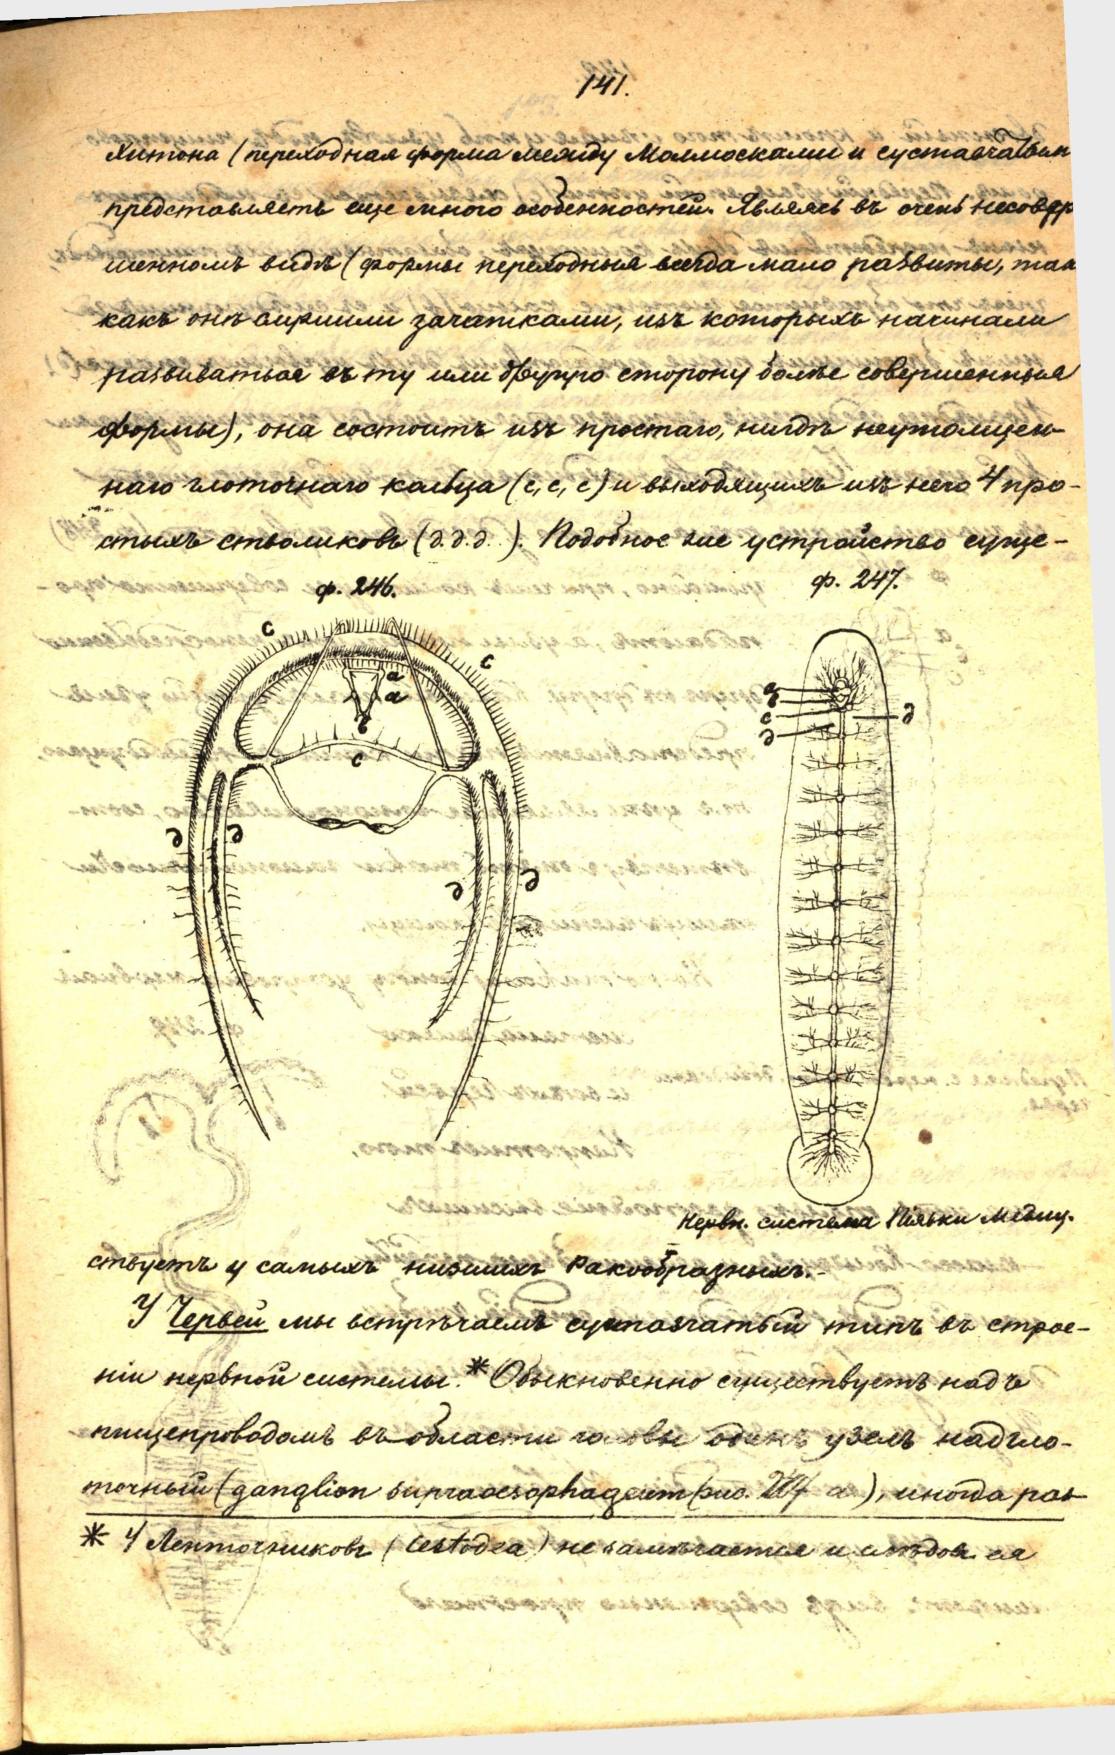 141.
Хитона (переходная форма между Моллюсками и суставчатыми
представляетъ еще много особенностей. Являясь въ очень несовер
шенномъ видѣ (формы переходныя всегда мало развиты, так
какъ онѣ служили зачатками, изъ которыхъ начинали
развиваться въ ту или другую сторону болѣе совершенныя
формы), она состоитъ изъ простаго, нигдѣ неутолщен-
наго глоточнаго кольца (с, с, с) и выходящихъ изъ него 4 про-
стыхъ стволиковъ (д.д.д.). Подобное же устройство суще-
ф. 246.
ф. 247.
с
с
а
а
в
с
е
е
е
е
а
в
с
д
д
Нервн. система Піявки Медиц.
ствуетъ у самыхъ низшихъ Ракообразныхъ.-
У Червей мы встрѣчаемъ суставчатый типъ въ строе-
ніи нервной системы.* Обыкновенно существуетъ надъ
пищепроводомъ въ области головы одинъ узелъ надгло-
точный (ganglion supraoesophageum (рис. 247 а), иногда раз-
* У Ленточниковъ (Cestodea) не замѣчается и слѣдов ея